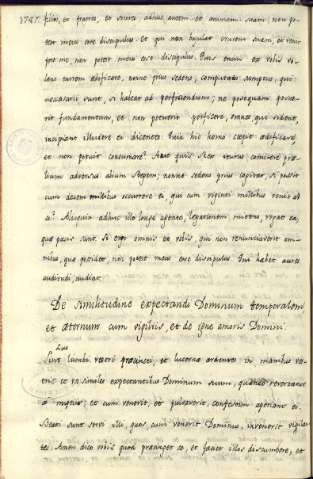 1747. filios, et fratres, et sorores adhuc autem et animam suam non po-
test meus esse discipulus et qui non bajulat crucem suam, et venit
post me, non potest meus esse discipulus. Quis enim ex vobis vo-
lens turrim ædificare, nonne prius sedens, computat sumptus, qui
necessarii sunt, si habeat ad perficiendum; ne posteaquam posue-
rit fundamentum, et non potuerit perficere, omnes, qui vident,
incipiant illudere ei dicentes: Quia hic homo coepit ædificare
et non potuit consumare? Aut quis Rex iturus comitere præ-
lium adversus alium Regem; nonne sedens prius cogitat, si possit
cum decem millibus occurrere ei, qui cum viginti millibus venit ad
se? Alioquin adhuc illo longe agente, legationem mittens, rogat ea,
quæ pacis sunt. Si ergo omnis ex vobis, qui non renunciaverit om-
nibus, quæ possidet, non potest meus esse discipulus. Qui habet aures
audiendi, audiat.
De similitudine expectandi Dominum temporalem
et æternum cum vigiliis, et de igne amoris Domini.
Luc
Sint lumbi vestri præcincti, et lucernæ ardentes in manibus ves-
tris et vos similes expectantibus Dominum suum, quando revertatur
a nuptiis; et cum venerit, et pulsaverit, confestim aperiant ei.
Beati sunt servi illi, quos, cum venerit Dominus, invenerit vigilan-
tes. Amen dico vobis quod præcinget se, et faciet illos discumbere, et